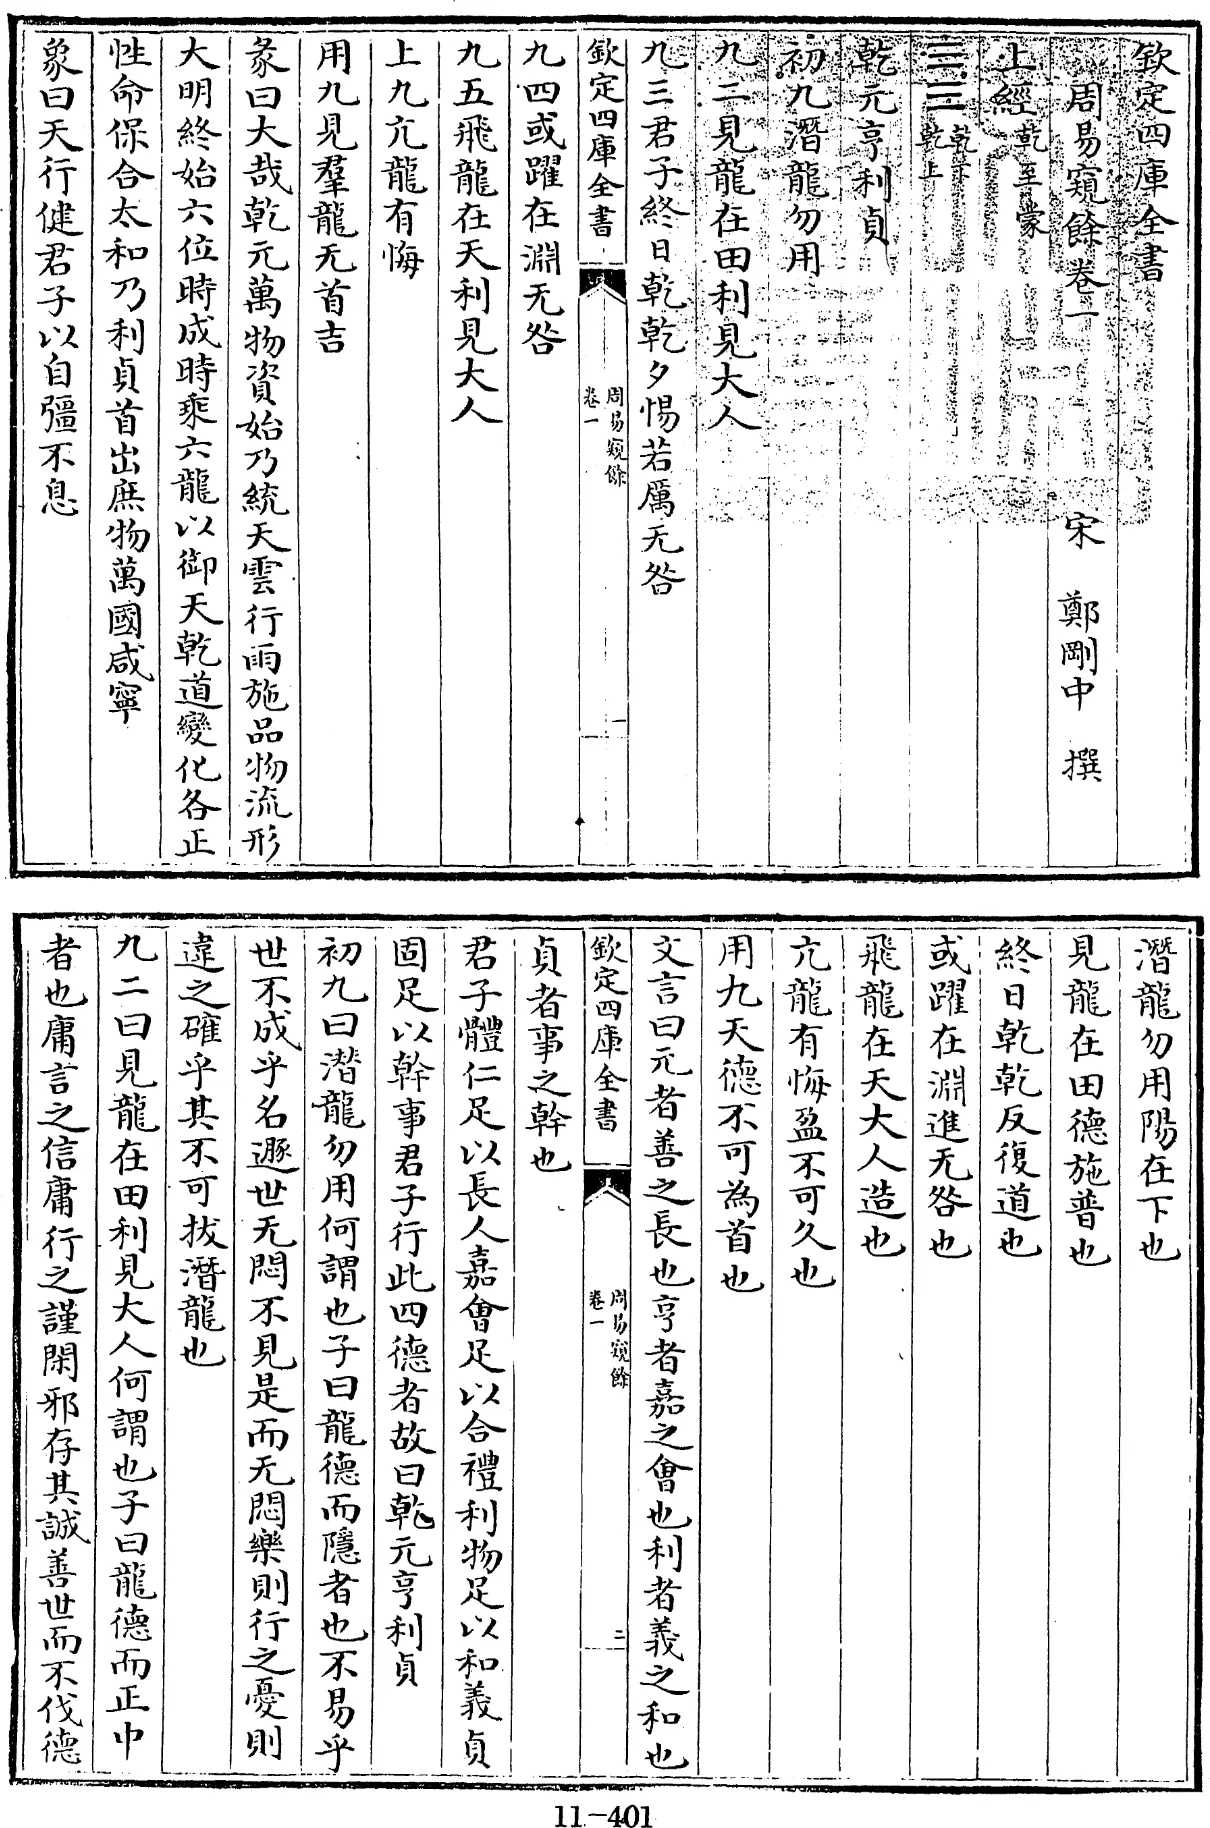 欽定四庫全書
周易窺餘卷一　宋　鄭剛中　撰
上經 乾至蒙
乾下
乾上
乾元亨利貞
初九潛龍勿用
九二見龍在田利見大人
九三君子終日乾乾夕惕若厲无咎
欽定四庫全書
周易窺餘
卷一
一
九四或躍在淵无咎
九五飛龍在天利見大人
上九亢龍有悔
用九見羣龍无首吉
彖曰大哉乾元萬物資始乃統天雲行雨施品物流形
大明終始六位時成時乘六龍以御天乾道變化各正
性命保合太和乃利貞首出庶物萬國咸寧
象曰天行健君子以自彊不息
潛龍勿用陽在下也
見龍在田德施普也
終日乾乾反復道也
或躍在淵進无咎也
飛龍在天大人造也
亢龍有悔盈不可久也
用九天德不可為首也
文言曰元者善之長也亨者嘉之會也利者義之和也
欽定四庫全書
周易窺餘
卷一
二
貞者事之幹也
君子體仁足以長人嘉會足以合禮利物足以和義貞
固足以幹事君子行此四德者故曰乾元亨利貞
初九曰潛龍勿用何謂也子曰龍德而隱者也不易乎
世不成乎名遯世无悶不見是而无悶樂則行之憂則
違之確乎其不可拔潛龍也
九二曰見龍在田利見大人何謂也子曰龍德而正中
者也庸言之信庸行之謹閑邪存其誠善世而不伐德
11-401